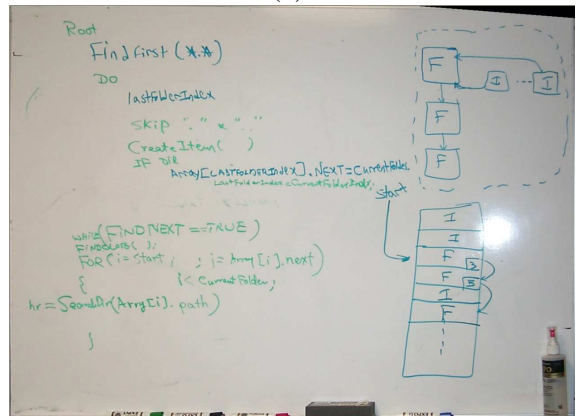 Root
Findfirst (*.*)
DO
lastfolderIndex
Skip "." & ".."
CreateItem( )
IF DIR
Array[LASTFOLDERIndex].NEXT=CurrentFolder
LastFolderIndex=CurrentFolderIndex;
WHILE(FINDNEXT==TRUE)
FINDCLOSE( );
FOR(i=Start; ; i=Array[i].next)
{ i<CurrentFolder;
hr=SearchDir(Array[i].path)
}
F
I ... I
F
F
Start
I
I
F 3
F 5
I
F